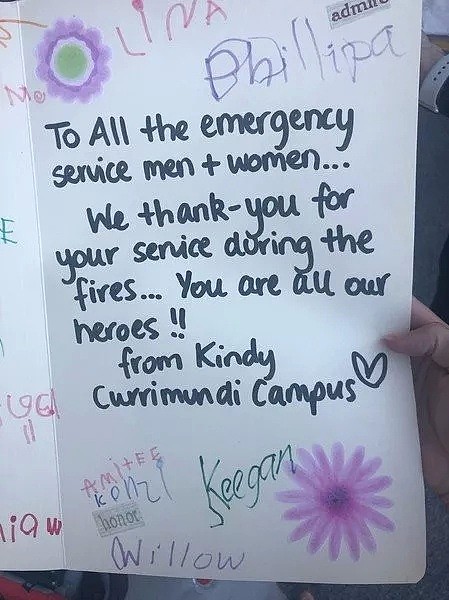 LINA
admire
Phillipa
Me
To All the emergency
service men + women...
We thank-you for
your service during the
fires... You are all our
heroes !!
from Kindy
Currimundi Campus
AMITEE
Keegan
honor
Willow